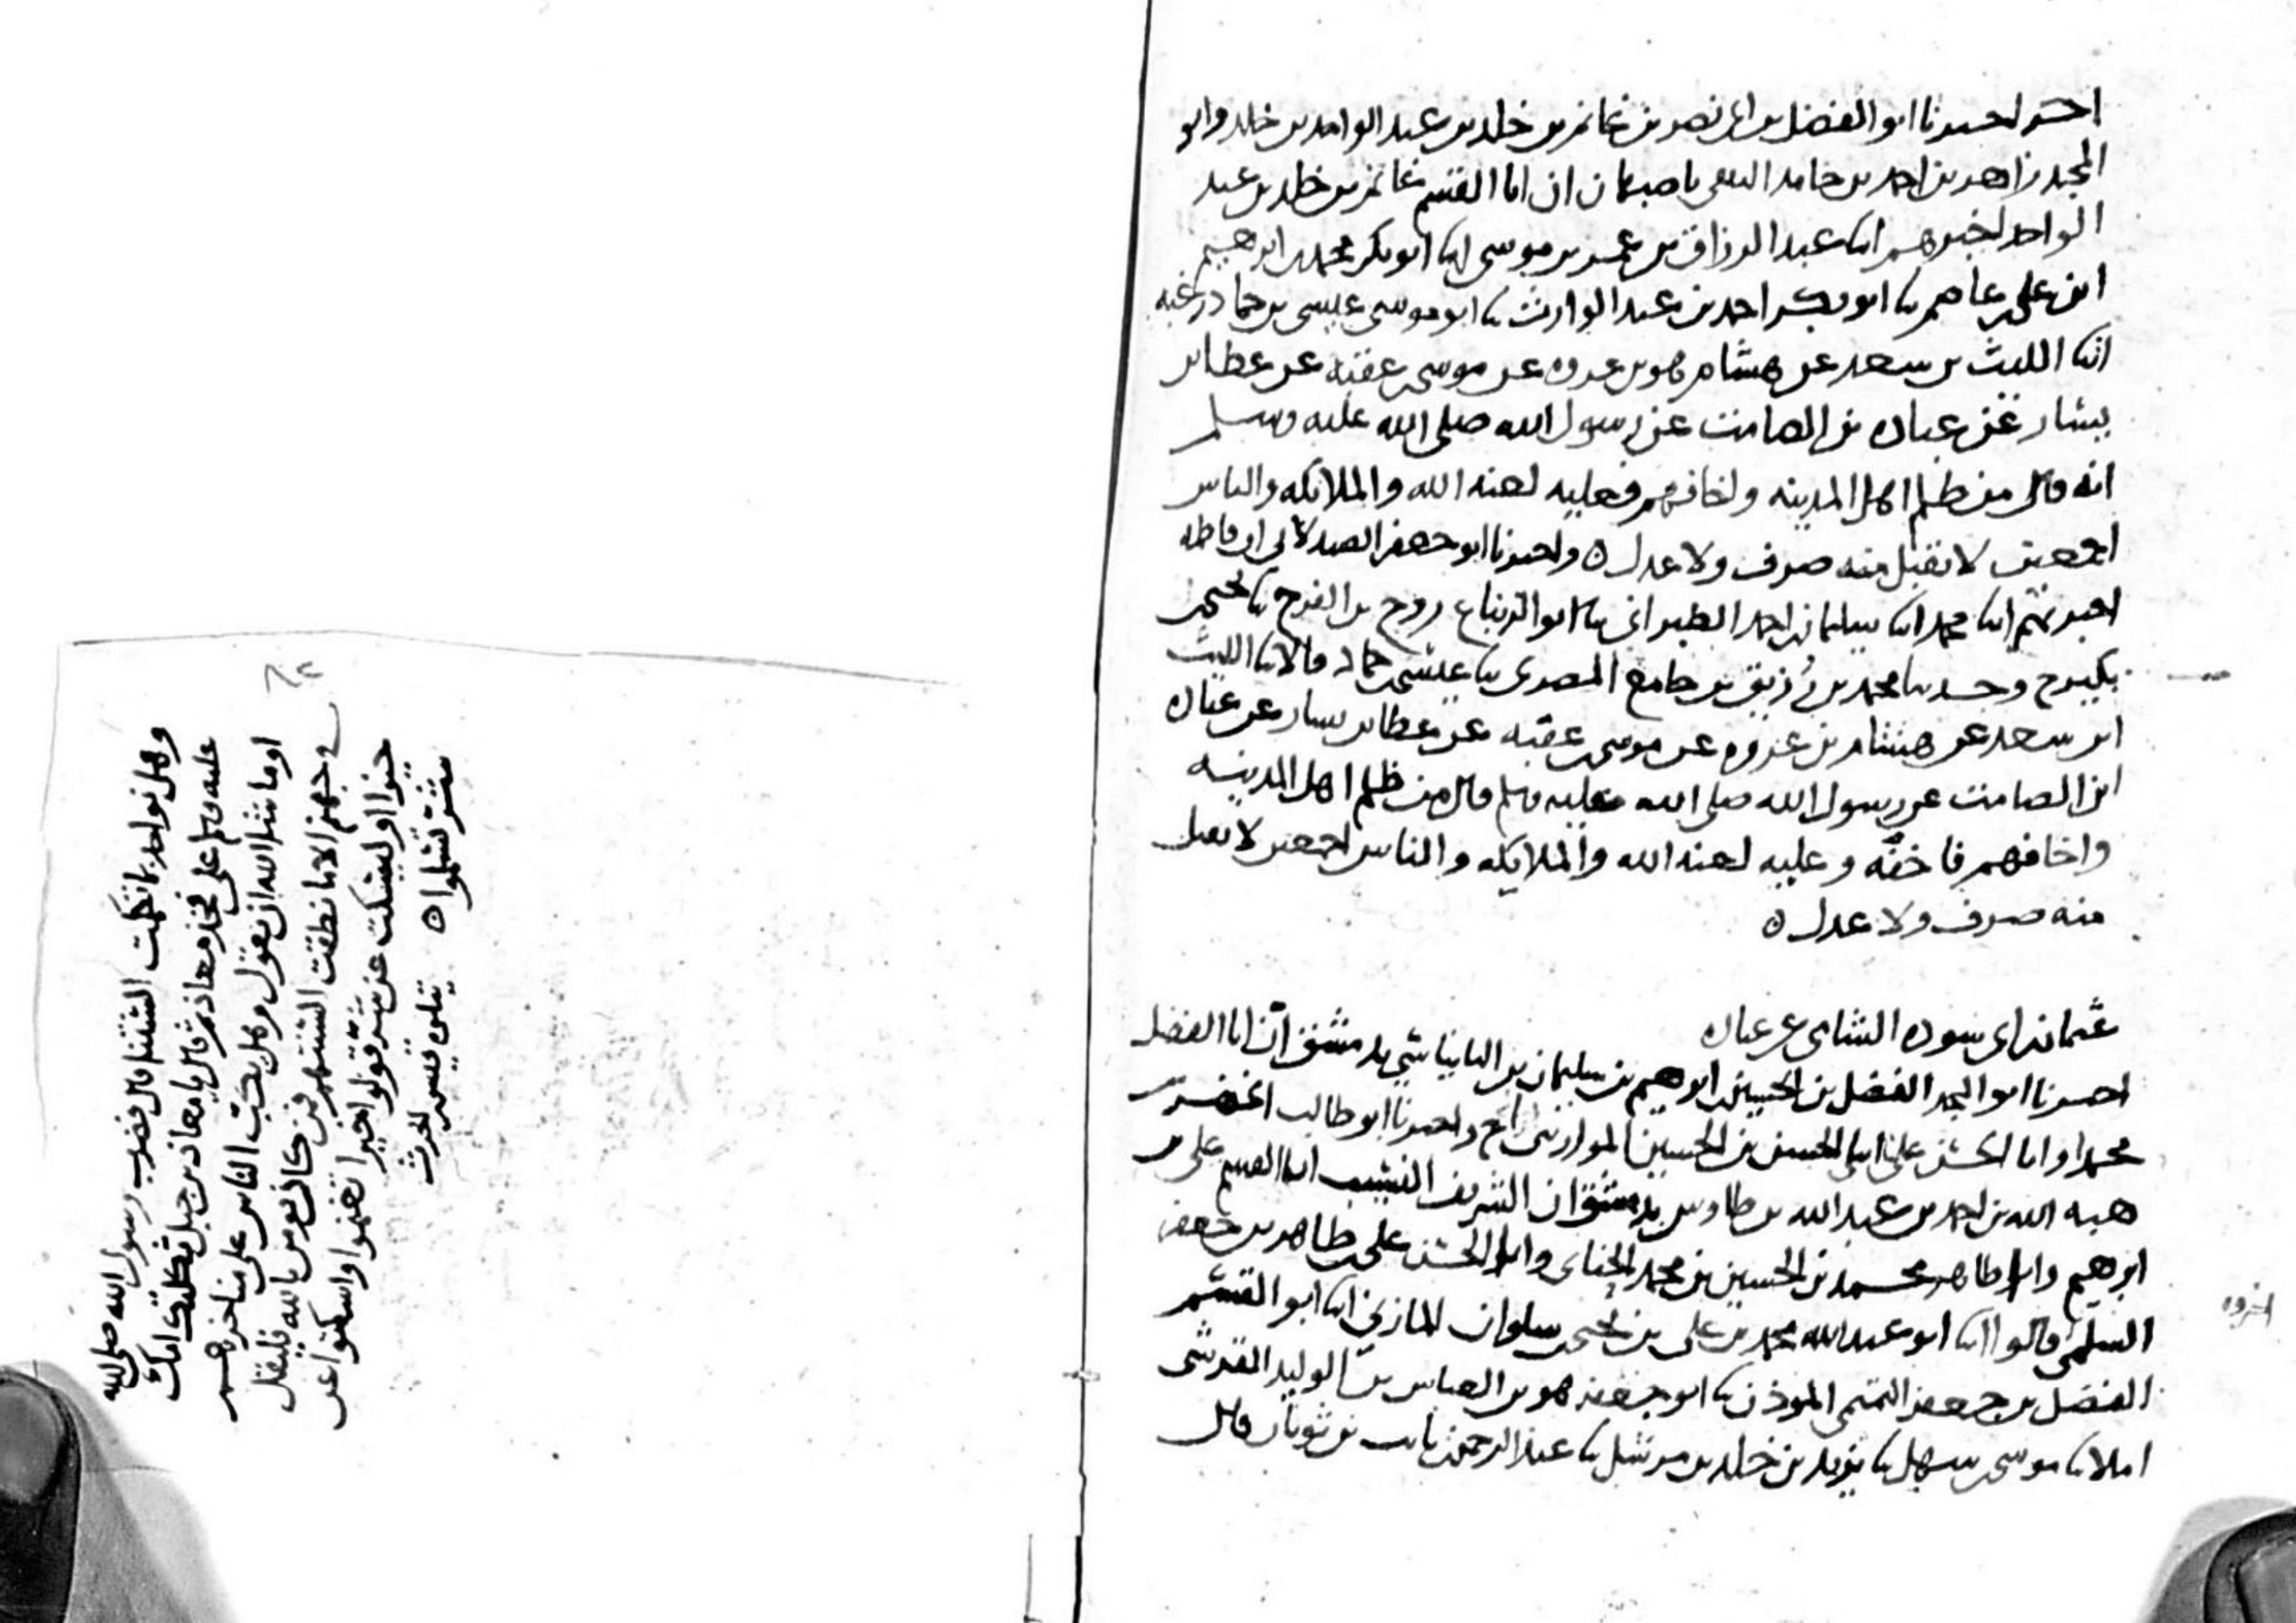 اخر اخبرنا ابو الفضل بن ابي نصر بن غانم بن خلد بن عبد الواحد بن خلد وابو
المجد زاهر بن احمد بن حامد الثقفي باصبهان ان ابا القسم غانم بن خلد بن عبد
الواحد اخبرهم ابنا عبد الرزاق بن عمر بن موسى ابنا ابو بكر محمد بن ابرهيم
ابن علي بن عاصم ثنا ابو بكر احمد بن عبد الوارث ثنا ابو موسى عيسى بن حماد زغبه
انبا الليث بن سعد عن هشام هو بن عروه عن موسى بن عقبه عن عطا بن
يسار عن عباده بن الصامت عن رسول الله صلى الله عليه وسلم
انه قال من ظلم اهل المدينه واخافهم فعليه لعنه الله والملائكه والناس
اجمعين لا يقبل منه صرف ولا عدل ه واخبرنا ابو جعفر الصيدلاني ان فاطمه
اخبرتهم ابنا محمد ابنا سليمان بن احمد الطبراني ثنا ابو الزنباع روح بن الفرج ثنا يحيى بن
بكير ح وحدثنا محمد بن زريق بن جامع المصري ثنا عيسى بن حماد قالا ثنا الليث
ابن سعد عن هشام بن عروه عن موسى بن عقبه عن عطا بن يسار عن عباده
ابن الصامت عن رسول الله صلى الله عليه وسلم قال من ظلم اهل المدينه
واخافهم فاخفه وعليه لعنه الله والملايكه والناس اجمعين لا يقبل
منه صرف ولا عدل ه
عثمان بن ابي سوده الشامي عن عباده
اخبرنا ابو المجد الفضل بن الحسين بن ابرهيم بن سليمان بن البانياسي بدمشق ان ابا الفضل
محمدا وابا الحسن علي ابني الحسن بن الحسين الموازيني ح واخبرنا ابو طالب الخضر بن
هبه الله بن احمد بن عبد الله بن طاوس بدمشق ان الشريف النسيب ابا القسم علي بن
ابرهيم وابا طاهر محمد بن الحسين بن محمد الحنائي وابا الحسن علي بن طاهر بن جعفر
السلمي قالوا ابنا ابو عبد الله محمد بن علي بن يحيى بن سلوان المازني ابنا ابو القسم
الفضل بن جعفر التميمي الموذن ثنا ابو جعفر هو بن العباس بن الوليد القرشي
املا ثنا موسى بن سهل ثنا يزيد بن خلد بن مرشل ثنا عبد الرحمن بن ثابت بن ثوبان قال
وهل نواخذ بما تكلمت السنتنا قال فضرب رسول الله صلى الله
عليه وسلم على فخذ معاذ ثم قال يا معاذ بن جبل ثكلتك امك
او ما شا الله ان يقول وهل يكب الناس على مناخرهم
في جهنم الا ما نطقت السنتهم فمن كان يومن بالله فليقل
خيرا او ليسكت عن شر قولوا خيرا تغنموا واسكتوا عن
شر تسلموا ه يتلوه قيس بن الحرث